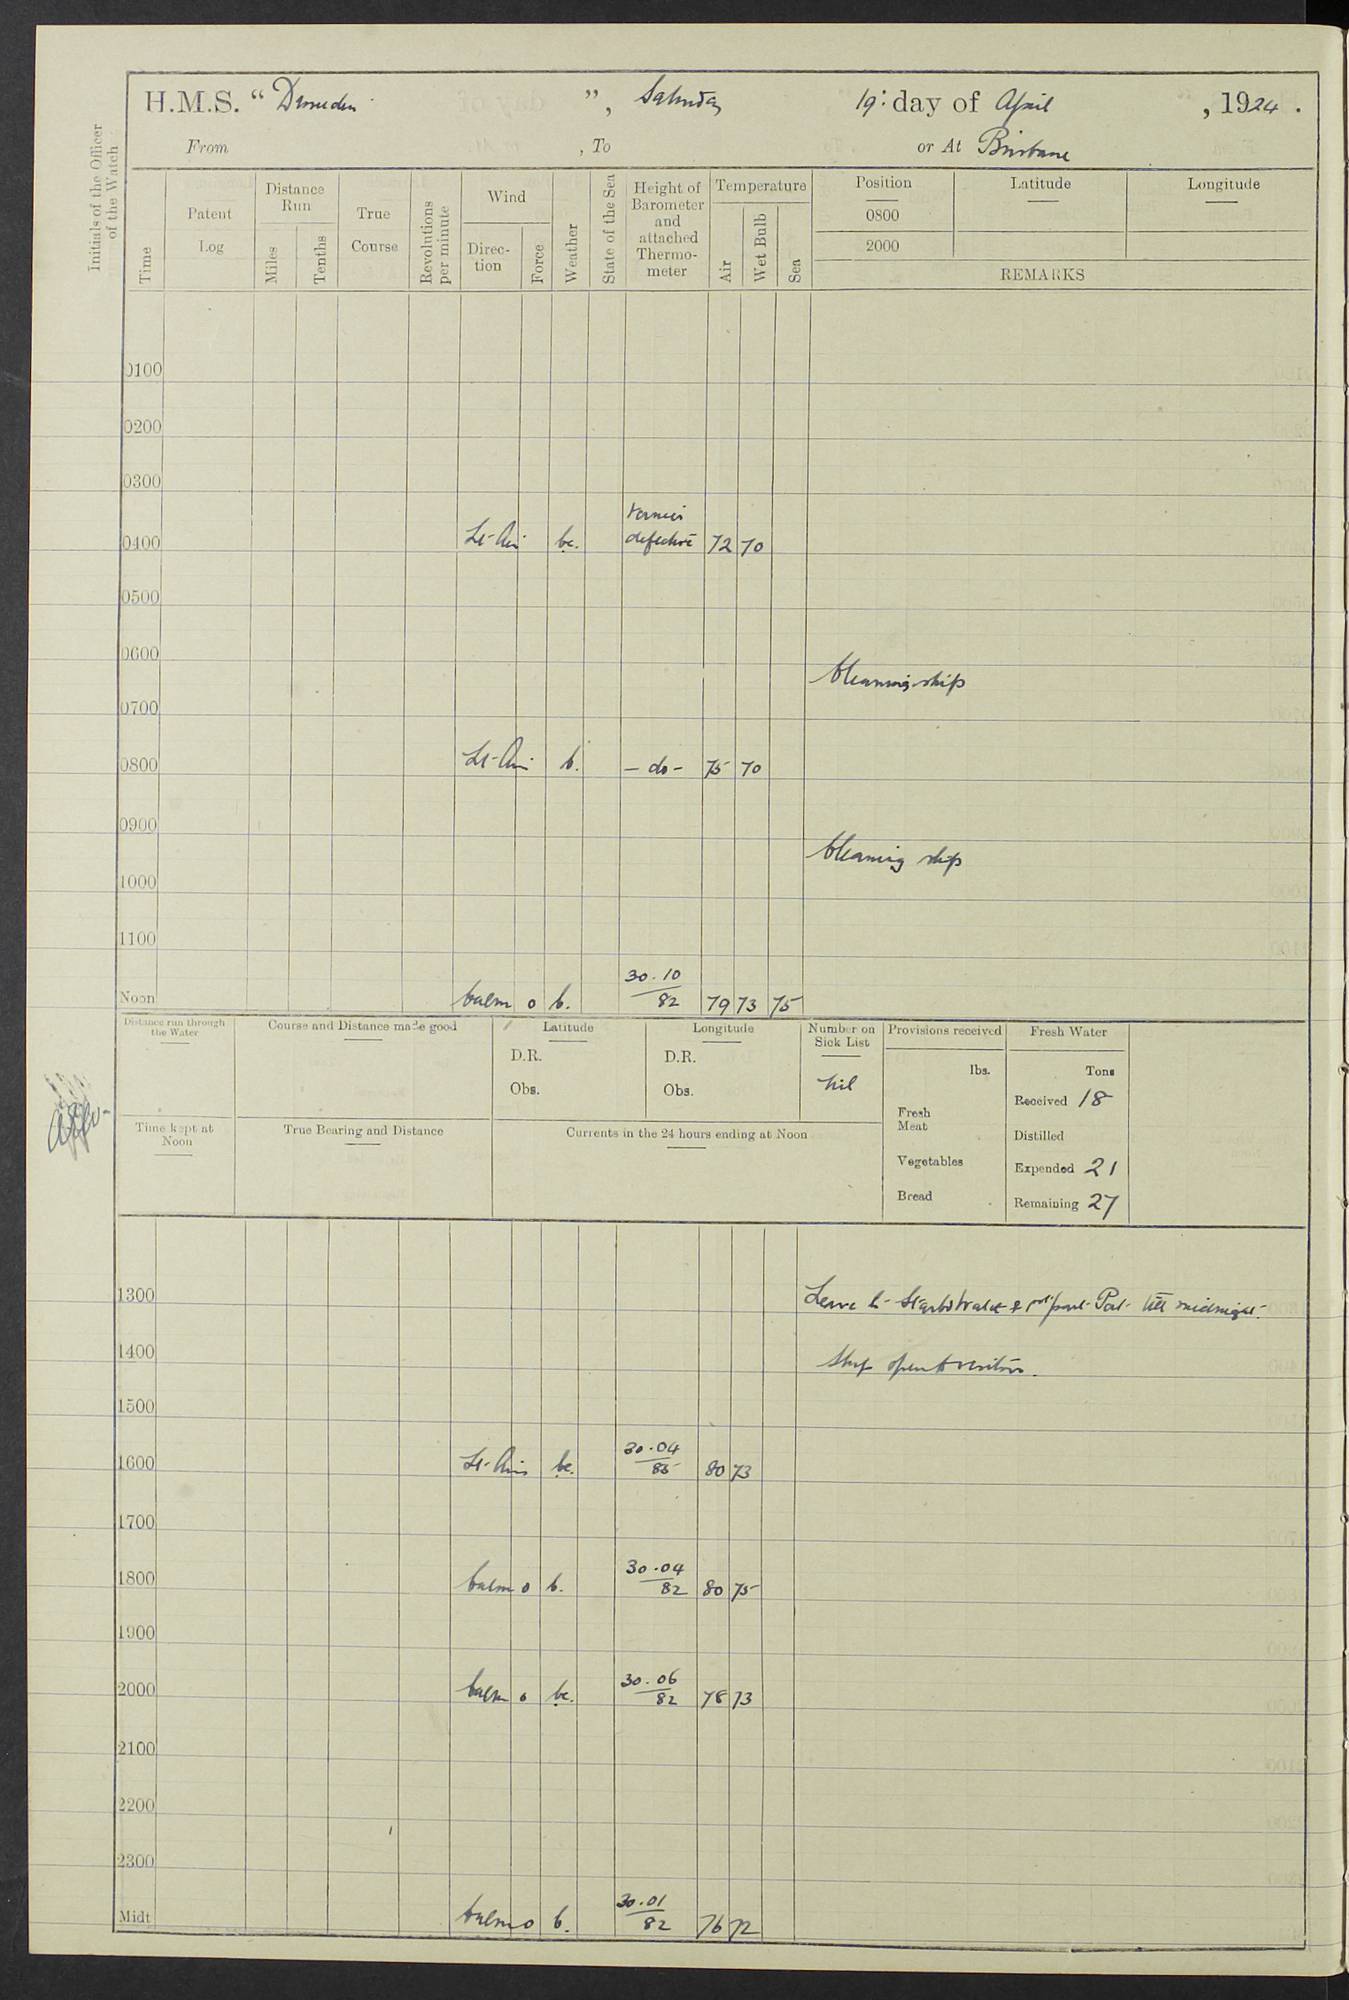 H.M.S. “ Dunedin ”, Saturday 19: day of April , 1924 .
From , To or At Brisbane
Initials of the Officer of the Watch
Time
Patent Log
Distance Run
Miles
Tenths
True Course
Revolutions per minute
Wind
Direc- tion
Force
Weather
State of the Sea
Height of Barometer and attached Thermo- meter
Temperature
Air
Wet Bulb
Sea
Position Latitude Longitude
0800
2000
REMARKS
0100
0200
0300
0400 Lt-Air bc. Vernier defective 72 70
0500
0600
Cleaning ship
0700
0800 Lt-Air b. - do - 75 70
0900
Cleaning ship
1000
1100
Noon Calm 0 b. 30.10 82 79 73 75
Distance run through the Water
Course and Distance made good
Latitude
D.R.
Obs.
Longitude
D.R.
Obs.
Number on Sick List
nil
Provisions received
lbs.
Fresh Meat
Vegetables
Bread
Fresh Water
Tons
Received 18
Distilled
Expended 21
Remaining 27
Time kept at Noon
True Bearing and Distance
Currents in the 24 hours ending at Noon
1300 Leave to Starbd Watch & part Port till midnight.
1400 Ship open to visitors.
1500
1600 Lt-Airs bc. 30.04 85 80 73
1700
1800 Calm 0 b. 30.04 82 80 75
1900
2000 Calm 0 bc. 30.06 82 78 73
2100
2200
2300
Midt Calm 0 b. 30.01 82 76 72